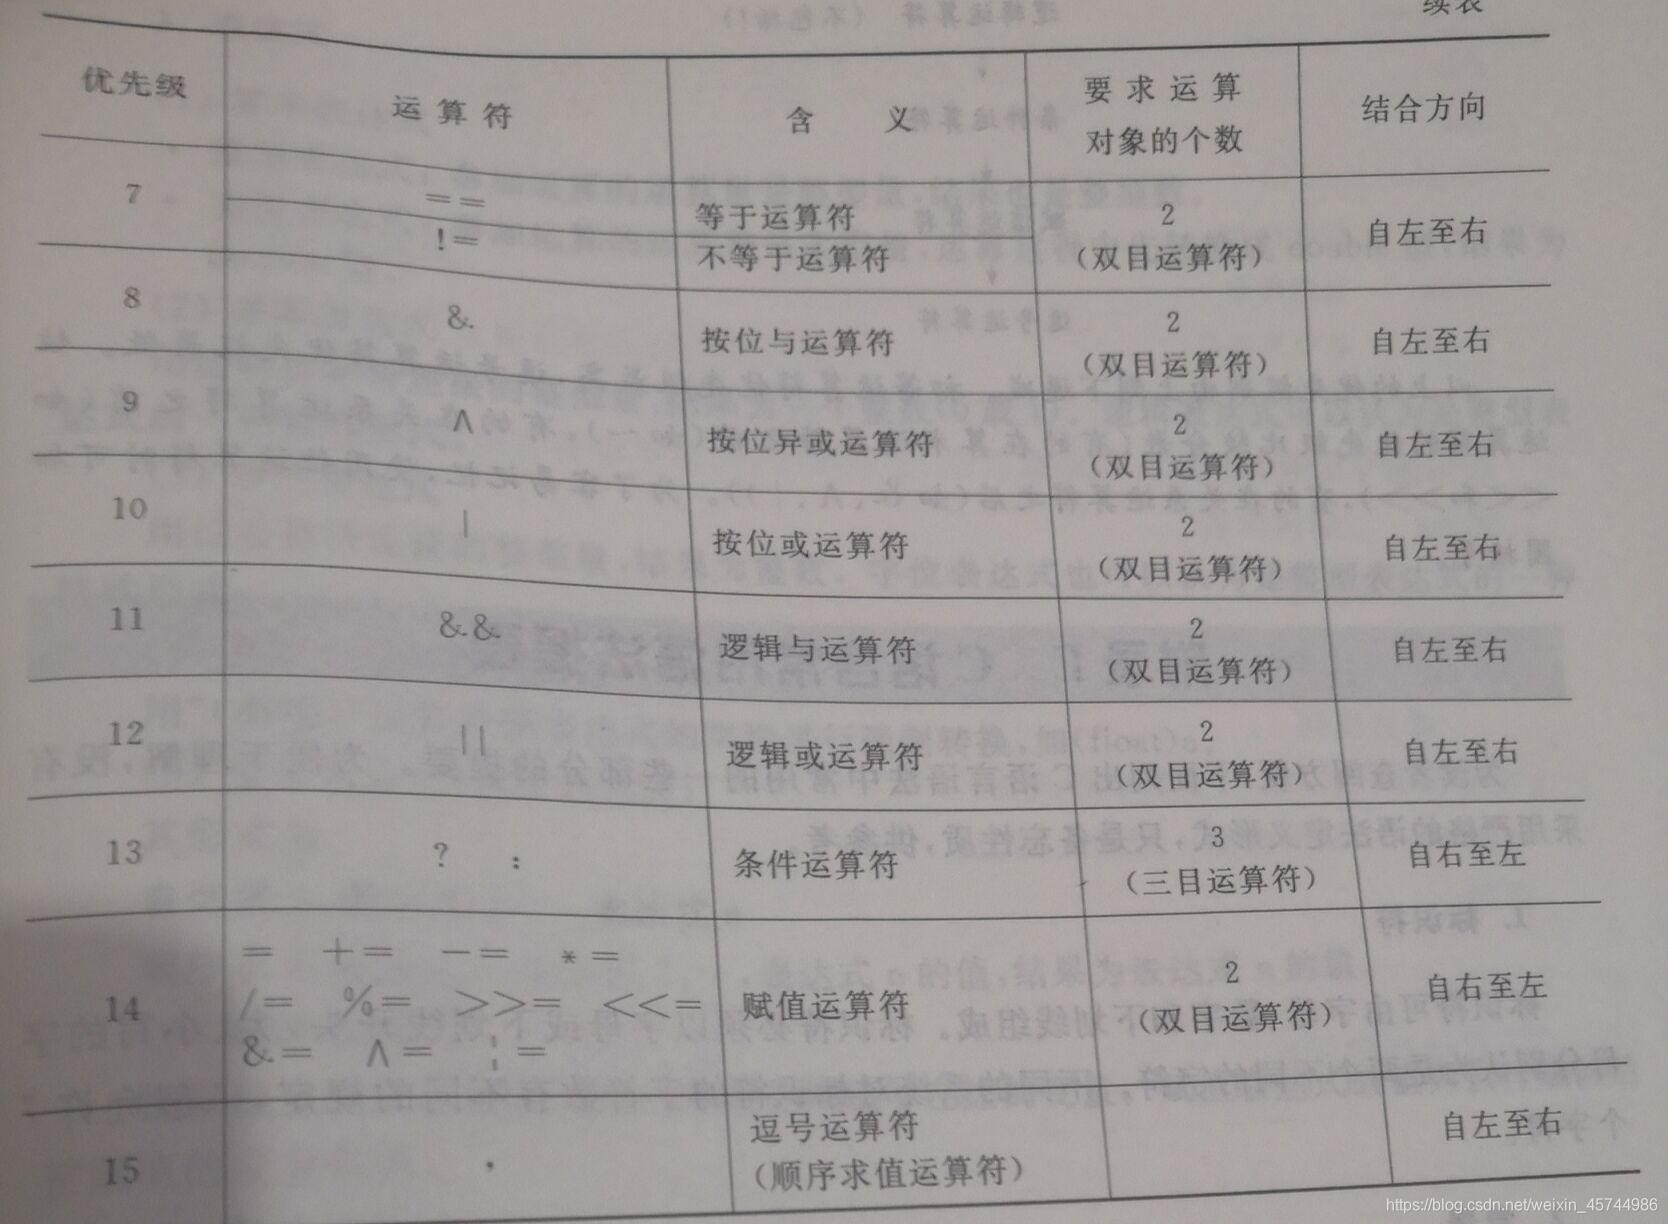 续表
优先级 运算符 含 义 要求运算对象的个数 结合方向
7 == 等于运算符 2 (双目运算符) 自左至右
!= 不等于运算符
8 & 按位与运算符 2 (双目运算符) 自左至右
9 ∧ 按位异或运算符 2 (双目运算符) 自左至右
10 | 按位或运算符 2 (双目运算符) 自左至右
11 && 逻辑与运算符 2 (双目运算符) 自左至右
12 || 逻辑或运算符 2 (双目运算符) 自左至右
13 ? : 条件运算符 3 (三目运算符) 自右至左
14 = += -= *= 赋值运算符 2 (双目运算符) 自右至左
/= %= >>= <<=
&= ∧= ¦=
15 , 逗号运算符 自左至右
(顺序求值运算符)
https://blog.csdn.net/weixin_45744986